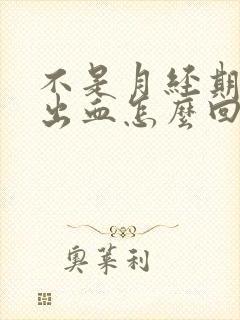 不是月经期
出血怎麼回
奥莱利